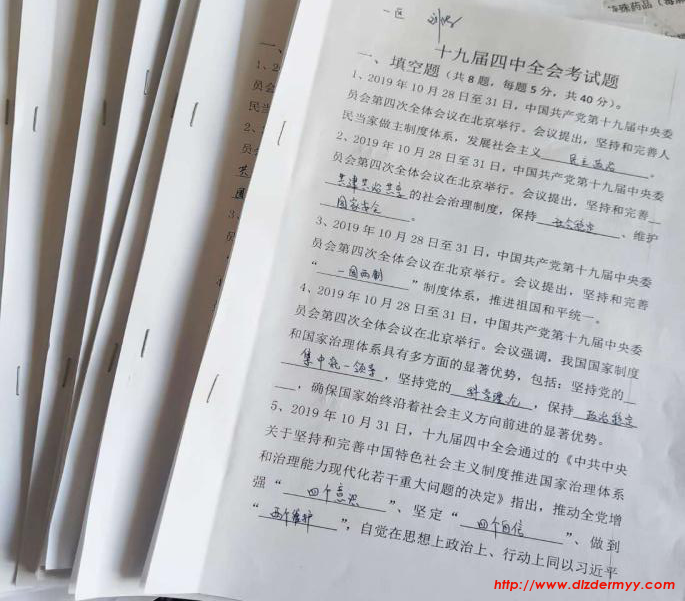 殊药品（每
一区
十九届四中全会考试题
一、填空题（共8题，每题5分，共40分）。
1、2019年10月28日至31日，中国共产党第十九届中央委
员会第四次全体会议在北京举行。会议提出，坚持和完善人
民当家做主制度体系，发展社会主义 民主政治 。
2、2019年10月28日至31日，中国共产党第十九届中央委
员会第四次全体会议在北京举行。会议提出，坚持和完善
共建共治共享 的社会治理制度，保持 社会稳定 、维护
国家安全 。
3、2019年10月28日至31日，中国共产党第十九届中央委
员会第四次全体会议在北京举行。会议提出，坚持和完善
“ 一国两制 ”制度体系，推进祖国和平统一。
4、2019年10月28日至31日，中国共产党第十九届中央委
员会第四次全体会议在北京举行。会议强调，我国国家制度
和国家治理体系具有多方面的显著优势，包括：坚持党的
集中统一领导 ，坚持党的 科学理论 ，保持 政治稳定
，确保国家始终沿着社会主义方向前进的显著优势。
5、2019年10月31日，十九届四中全会通过的《中共中央
关于坚持和完善中国特色社会主义制度推进国家治理体系
和治理能力现代化若干重大问题的决定》指出，推动全党增
强“ 四个意识 ”、坚定“ 四个自信 ”、做到
“ 两个维护 ”，自觉在思想上政治上、行动上同以习近平
http://www.dlzdermyy.com